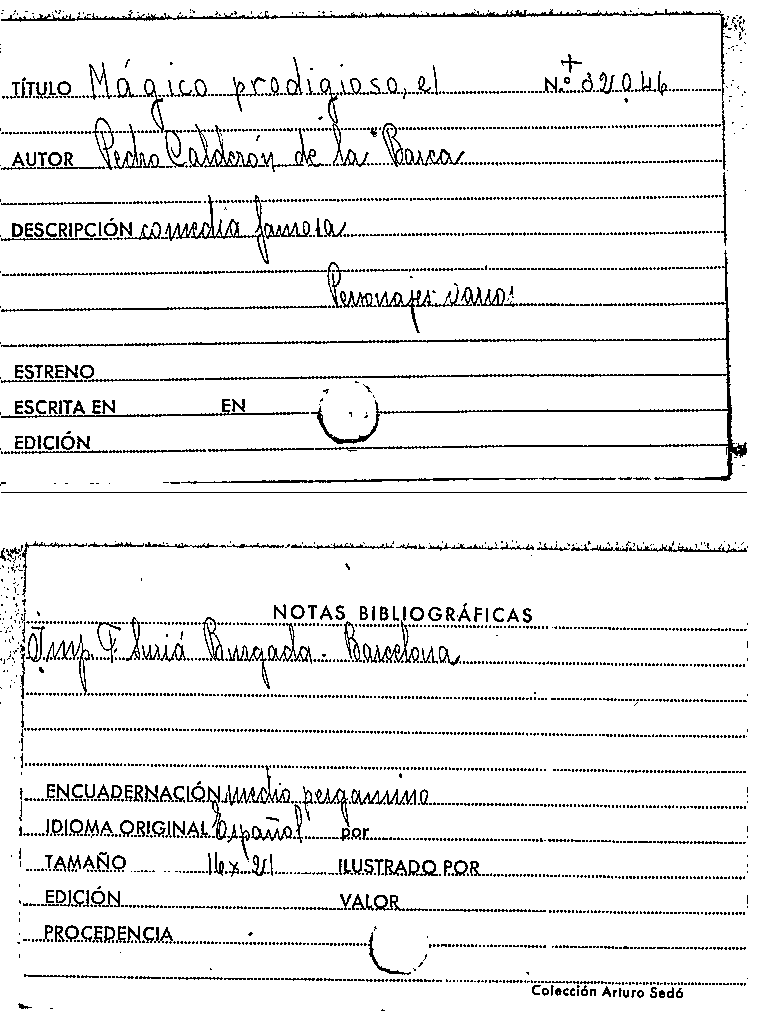 TÍTULO Mágico prodigioso, el Nº 32046
AUTOR Pedro Calderón de la Barca
DESCRIPCIÓN comedia famosa
Personajes varios
ESTRENO
ESCRITA EN EN
EDICIÓN
NOTAS BIBLIOGRÁFICAS
Imp. F. Suriá Burgada - Barcelona
ENCUADERNACIÓN medio pergamino
IDIOMA ORIGINAL Español por
TAMAÑO 16 x 21 ILUSTRADO POR
EDICIÓN VALOR
PROCEDENCIA
Colección Arturo Sedó